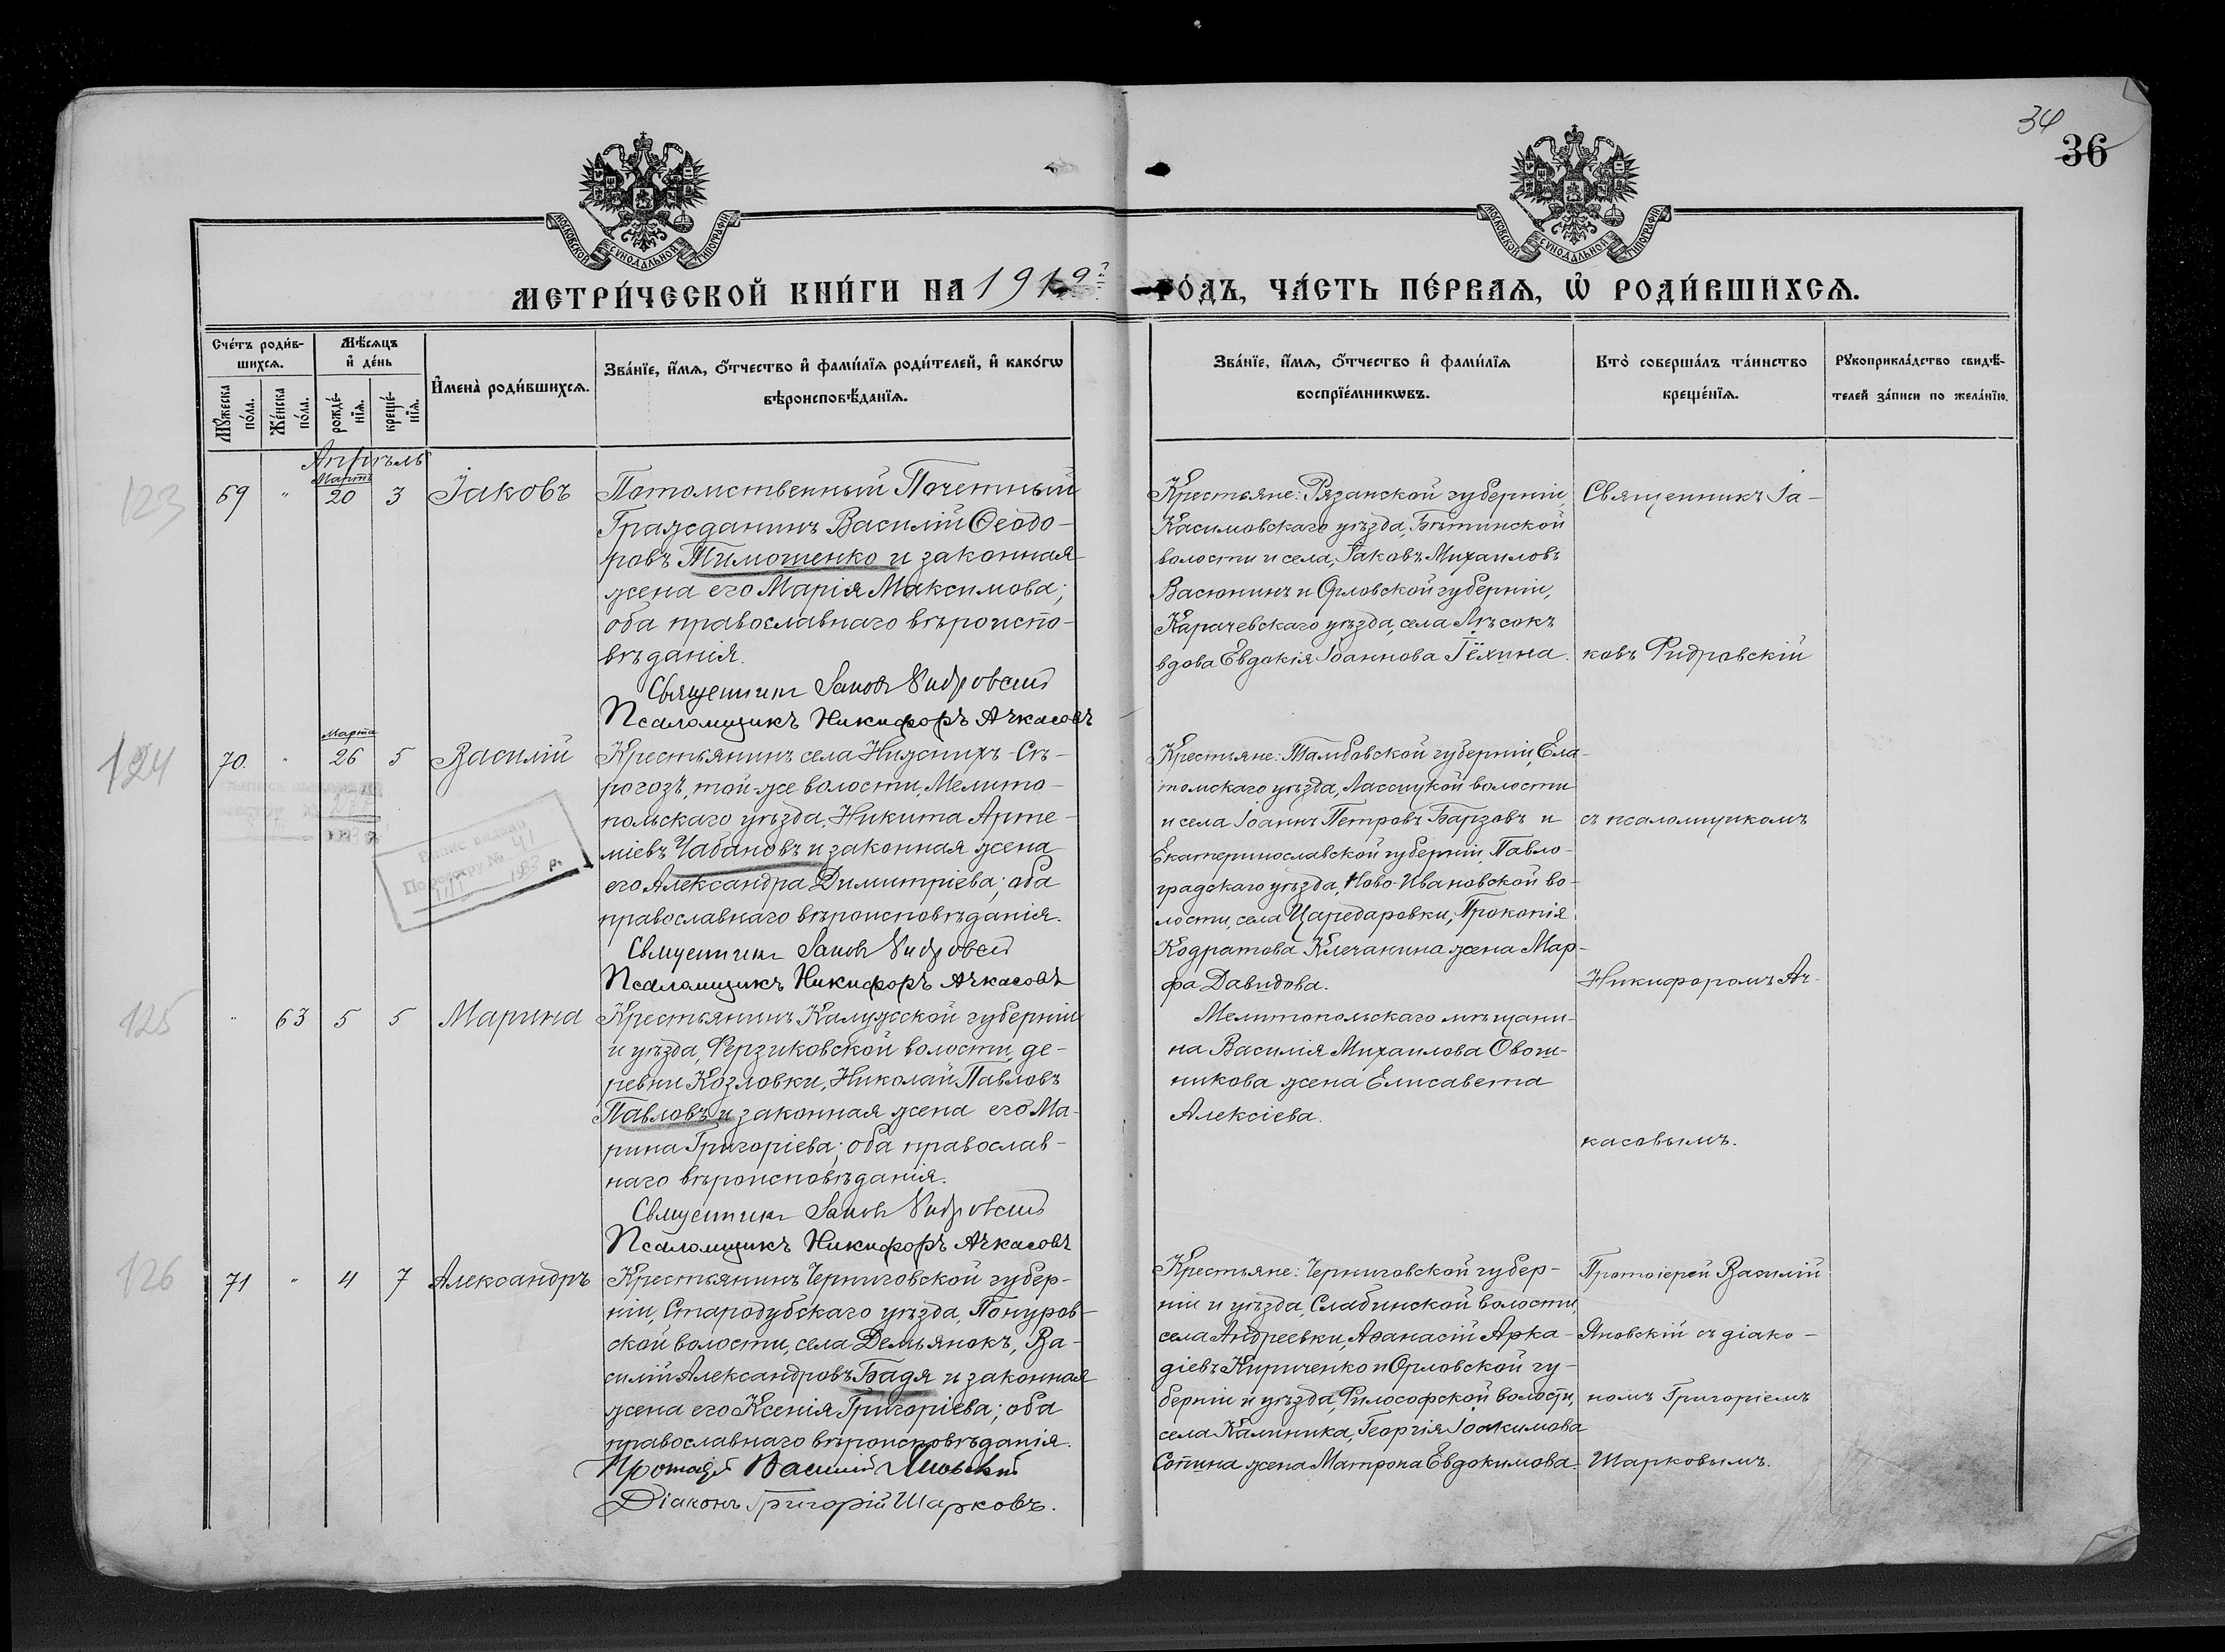 34
36
МОСКОВСКОЙ СѴНОДАЛЬНОЙ ТИПОГРАФІИ
МОСКОВСКОЙ СѴНОДАЛЬНОЙ ТИПОГРАФІИ
МЕТРИ́ЧЕСКОЙ КНИ́ГИ НА 1919 ГО́ДЪ, ЧА́СТЬ ПЕ́РВАѦ, Ѡ҆ РОДИ́ВШИХСѦ.
Сче́тъ роди́в-
шихсѧ.
Мꙋ́жеска по́ла.
Же́нска по́ла.
Мѣ́сѧцъ и҆ де́нь
рожде́-нїѧ.
креще́-нїѧ.
И҆мена̀ роди́вшихсѧ.
Зва́нїе, и҆́мѧ, ѻ҆́тчество и҆ фами́лїѧ роди́телей, и҆ како́гѡ
вѣроисповѣ́данїѧ.
Зва́нїе, и҆́мѧ, ѻ҆́тчество и҆ фами́лїѧ
воспрїе́мникѡвъ.
Кто̀ соверша́лъ та́инство
креще́нїѧ.
Рꙋкоприкла́дство свидѣ́-
телей за́писи по жела́нїю.
Апрѣль
123
69 " Мартъ 20 3 Іаковъ
Потомственный Почетный
Гражданинъ Василій Ѳеодо-
ровъ Тимошенко и законная
жена его Марія Максимова;
оба православнаго вѣроиспо-
вѣданія.
Священникъ Іаковъ Фидровскій
Псаломщикъ Никифоръ Ачкасовъ
Крестьяне: Рязанской губерніи,
Касимовскаго уѣзда, Бѣтинской
волости и села, Іаковъ Михаиловъ
Васюнинъ и Орловской губерніи,
Карачевскаго уѣзда, села Лѣсокъ
вдова Евдокія Іоаннова Гёхина.
Священникъ Іа-
ковъ Фидровскій
124
70. " Марта 26 5 Василій
Крестьянинъ села Нижнихъ-Сѣ-
рогозъ, той-же волости, Мелито-
польскаго уѣзда, Никита Арте-
міевъ Чабановъ и законная жена
его Александра Димитріева; оба
православнаго вѣроисповѣданія.
Священникъ Іаковъ Фидровскій
Псаломщикъ Никифоръ Ачкасовъ
По реєстру № 41
Крестьяне: Тамбовской губерніи, Ела-
томскаго уѣзда, Лассицкой волости
и села Іоаннъ Петровъ Барзовъ и
Екатеринославской губерніи, Павло-
градскаго уѣзда, Ново-Ивановской во-
лости, села Царедаровки, Прокопія
Кодратова Клечанина жена Мар-
фа Давидова.
съ псаломщикомъ
Никифоромъ Ач-
125
" 63 5 5 Марина
Крестьянинъ Калужской губерніи
и уѣзда, Ферзиковской волости, де-
ревни Козловки, Николай Павловъ
Павловъ и законная жена его Ма-
рина Григоріева; оба православ-
наго вѣроисповѣданія.
Священникъ Іаковъ Фидровскій
Псаломщикъ Никифоръ Ачкасовъ
Мелитопольскаго мѣщани-
на Василія Михаилова Овощ-
никова жена Елисавета
Алексіева.
касовымъ.
126
71 " 4 7 Александръ
Крестьянинъ Черниговской губер-
ніи, Стародубскаго уѣзда, Понуров-
ской волости, села Демьянокъ, Ва-
силій Александровъ Бадя и законная
жена его Ксенія Григоріева; оба
православнаго вѣроисповѣданія.
Протоіерей Василій Яновскій
Діаконъ Григорій Шарковъ.
Крестьяне: Черниговской губер-
ніи и уѣзда, Слабинской волости,
села Андреевки, Аѳанасій Арка-
діевъ Кириченко и Орловской гу-
берніи и уѣзда, Философской волости,
села Калинника, Георгія Іоакимова
Сотина жена Матрона Евдокимова.
Протоіерей Василій
Яновскій съ діако-
номъ Григоріемъ
Шарковымъ.